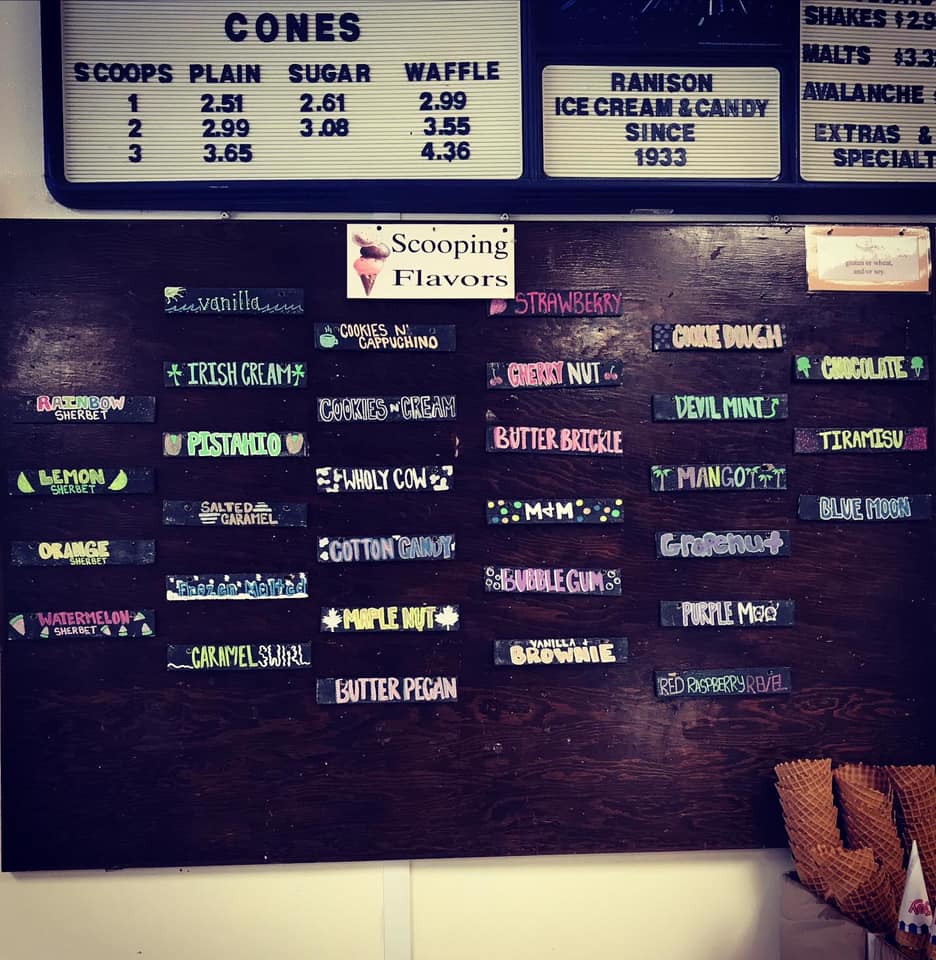 CONES
SCOOPS PLAIN SUGAR WAFFLE
1 2.51 2.61 2.99
2 2.99 3.08 3.55
3 3.65 4.36
RANISON
ICE CREAM & CANDY
SINCE
1933
SHAKES $2.9
MALTS $3.3
AVALANCHE
EXTRAS &
SPECIALT
Scooping
Flavors
gluten or wheat,
and/or soy.
RAINBOW
SHERBET
LEMON
SHERBET
ORANGE
SHERBET
WATERMELON
SHERBET
vanilla
IRISH CREAM
PISTAHIO
SALTED
CARAMEL
Frozen Malted
CARAMEL SWIRL
COOKIES N'
CAPPUCHINO
COOKIES N CREAM
WHOLY COW
COTTON CANDY
MAPLE NUT
BUTTER PECAN
STRAWBERRY
CHERRY NUT
BUTTER BRICKLE
M&M
BUBBLE GUM
VANILLA +
BROWNIE
COOKIE DOUGH
DEVIL MINT
MANGO
Grapenut
PURPLE MOO
RED RASPBERRY REVEL
CHOCOLATE
TIRAMISU
BLUE MOON